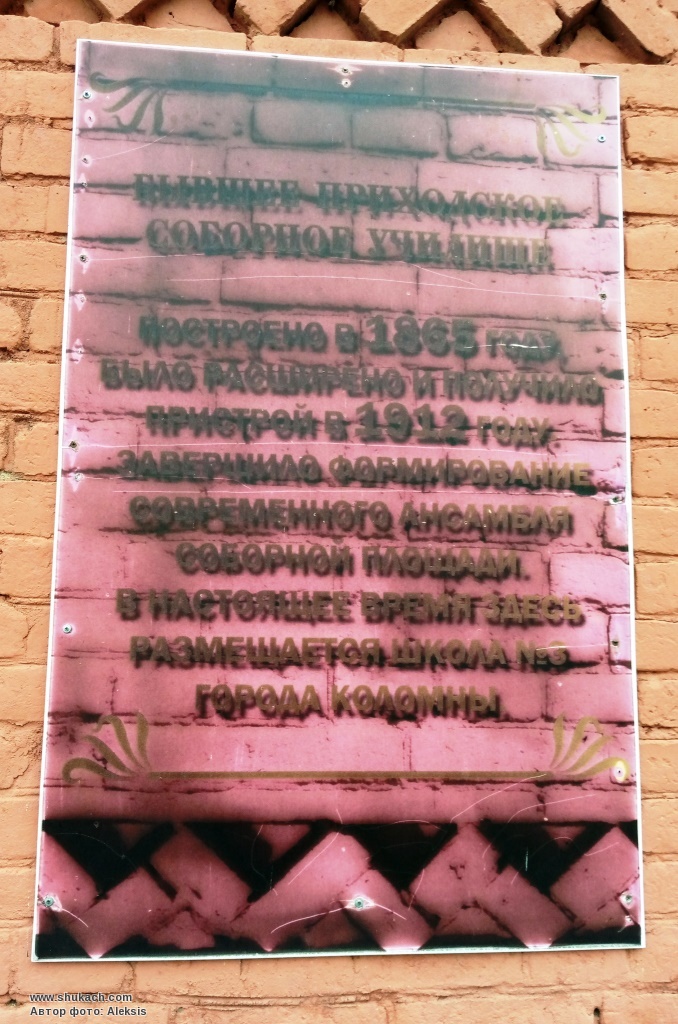 БЫВШЕЕ ПРИХОДСКОЕ
СОБОРНОЕ УЧИЛИЩЕ
ПОСТРОЕНО В 1865 ГОДУ.
БЫЛО РАСШИРЕНО И ПОЛУЧИЛО
ПРИСТРОЙ В 1912 ГОДУ.
ЗАВЕРШИЛО ФОРМИРОВАНИЕ
СОВРЕМЕННОГО АНСАМБЛЯ
СОБОРНОЙ ПЛОЩАДИ.
В НАСТОЯЩЕЕ ВРЕМЯ ЗДЕСЬ
РАЗМЕЩАЕТСЯ ШКОЛА №3
ГОРОДА КОЛОМНЫ.
www.shukach.com
Автор фото: Aleksis